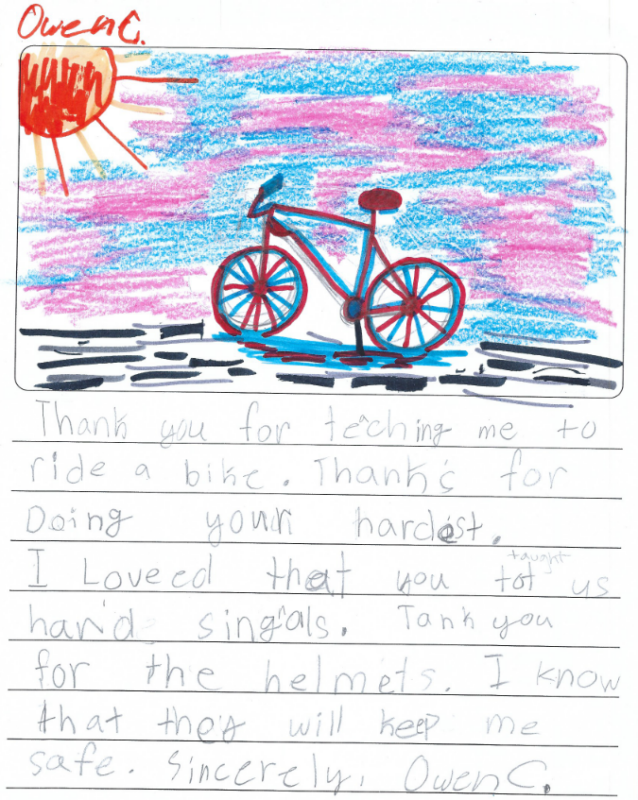 Owen C.
Thank you for teching me to
ride a bike. Thanks for
Doing your hardest.
taught
I Loveed that you tot us
hand singals. Tank you
for the helmets. I know
that they will keep me
safe. Sincerely, Owen C.